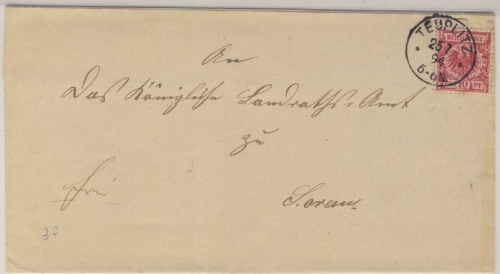 TEUPLITZ
25 1
94
5-6N
REICHSPOST
10 PF
An
Das Königliche Landraths-Amt
zu
Sorau
frei
30